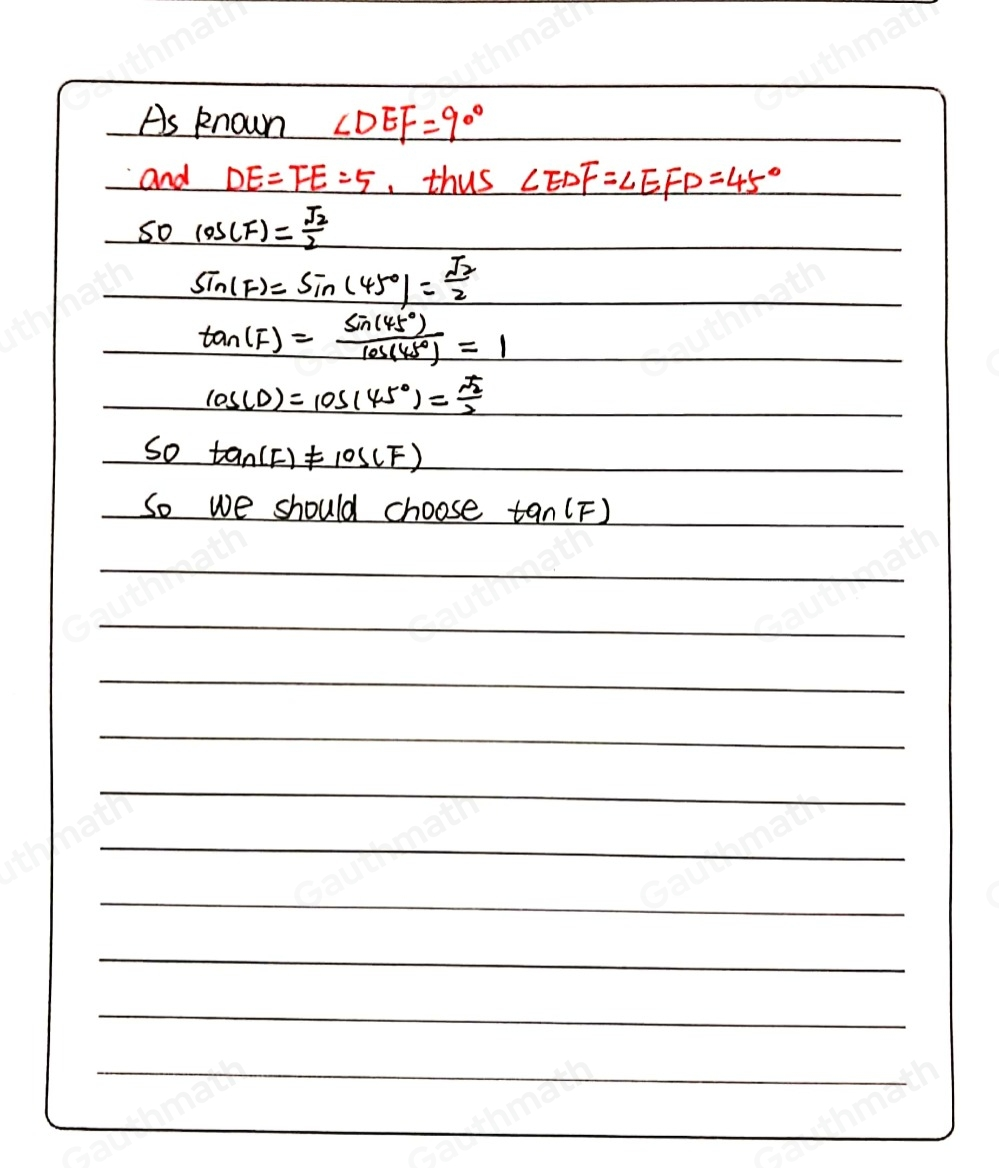 As known ∠DEF=90°
and DE=FE=5, thus ∠EDF=∠EFD=45°
so cos(F)=√2/2
sin(F)=sin(45°)=√2/2
tan(F)=sin(45°)/cos(45°)=1
cos(D)=cos(45°)=√2/2
So tan(F)≠cos(F)
So we should choose tan(F)
Gauthmath